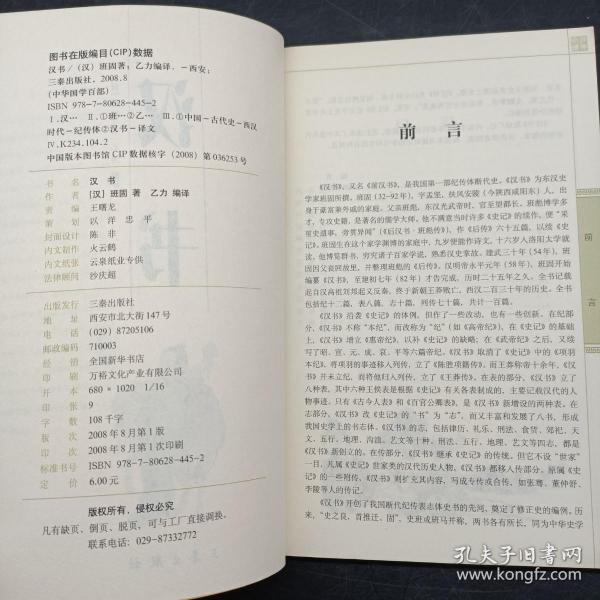 图书在版编目(CIP)数据
汉书/（汉）班固著；乙力编译.－西安：
三秦出版社，2008.8
（中华国学百部）
ISBN 978-7-80628-445-2
Ⅰ.汉… Ⅱ.①班…②乙… Ⅲ.①中国－古代史－西汉
时代－纪传体②汉书－译文
Ⅳ.K234.104.2
中国版本图书馆CIP数据核字（2008）第036253号
书 名 汉 书
作 者 [汉] 班固 著 乙力 编译
责 编 王曙龙
策 划 以 洋 忠 平
封面设计 陈 非
内文制作 火云鹤
内文纸张 云泉纸业专供
法律顾问 沙庆超
出版发行 三秦出版社
地 址 西安市北大街147号
电 话 (029) 87205106
邮政编码 710003
经 销 全国新华书店
印 刷 万裕文化产业有限公司
开 本 680×1020 1/16
印 张 9
字 数 108千字
版 次 2008年8月第1版
印 次 2008年8月第1次印刷
标准书号 ISBN 978-7-80628-445-2
定 价 6.00元
版权所有，侵权必究
凡有缺页、倒页、脱页，可与工厂直接调换。
联系电话：029-87332772
前 言
《汉书》，又名《前汉书》，是我国第一部纪传体断代史。《汉书》为东汉史
学家班固所撰。班固（32-92年），字孟坚，扶风安陵（今陕西咸阳东）人，出
身于豪富兼外戚的家庭。父亲班彪，东汉光武帝时，官至望都长。班彪博学多
才，专攻史籍，是著名的儒学大师，他不满意当时许多《史记》的续作，便“采
里史遗事，旁贯异闻”（《后汉书·班彪传》），作《后传》六十五篇，以续《史
记》。班固生在这个家学渊博的家庭中，九岁便能作诗文，十六岁入洛阳太学就
读，他博览群书，穷究诸子百家学说，熟悉汉史掌故。建武三十年（54年），班
固因父丧回故里，并整理班彪的《后传》，汉明帝永平元年（58年），班固开始
编纂《汉书》，至建初七年（82年）才告完成，历时二十五年之久。全书记载
起自汉高祖刘邦起义反秦，终于新朝王莽败亡，西汉二百三十年的历史。全书
包括纪十二篇，表八篇，志十篇，列传七十篇，共计一百篇。
《汉书》沿袭《史记》的体例，但作了一些改动，也有一些创新。在纪部
分，《汉书》不称“本纪”，而改称为“纪”（如《高帝纪》），在《史记》的基础
上，《汉书》增立《惠帝纪》，以补《史记》的缺略；在《武帝纪》之后，又续
写了昭、宣、元、成、哀、平等六篇帝纪。《汉书》取消了《史记》中的项羽
本纪，将项羽的事迹移入列传，立了《陈胜项籍传》。而王莽称帝十余年，《汉
书》并未立纪，而将他归入列传，立了《王莽传》。在表的部分，《汉书》立了
八种表，其中六种王侯表是根据《史记》有关各表制成的，主要记载汉代的人
物事迹。只有《古今人表》和《百官公卿表》，是《汉书》新增设的两种表。在
志部分，《汉书》改《史记》的“书”为“志”，而又丰富和发展了八书，形成
我国史学上的书志体。《汉书》的志，包括律历、礼乐、刑法、食货、郊祀、天
文、五行、地理、沟洫、艺文等十种。刑法、五行、地理、艺文等四志，都是
《汉书》新创立的。在传部分，《汉书》继承《史记》的传统，但它不设“世家”
一目，凡属《史记》世家类的汉代历史人物，《汉书》都移入传部分。原属《史
记》的一些附传，《汉书》则扩充其内容，写成专传或合传，如张骞、董仲舒、
李陵等人的传记。
《汉书》开创了我国断代纪传表志体史书的先河，奠定了修正史的编例。历
来，“史之良，首推迁、固”，史班或班马并称，两书各有所长，同为中华史学
前
言
孔夫子旧书网
www.kongfz.com